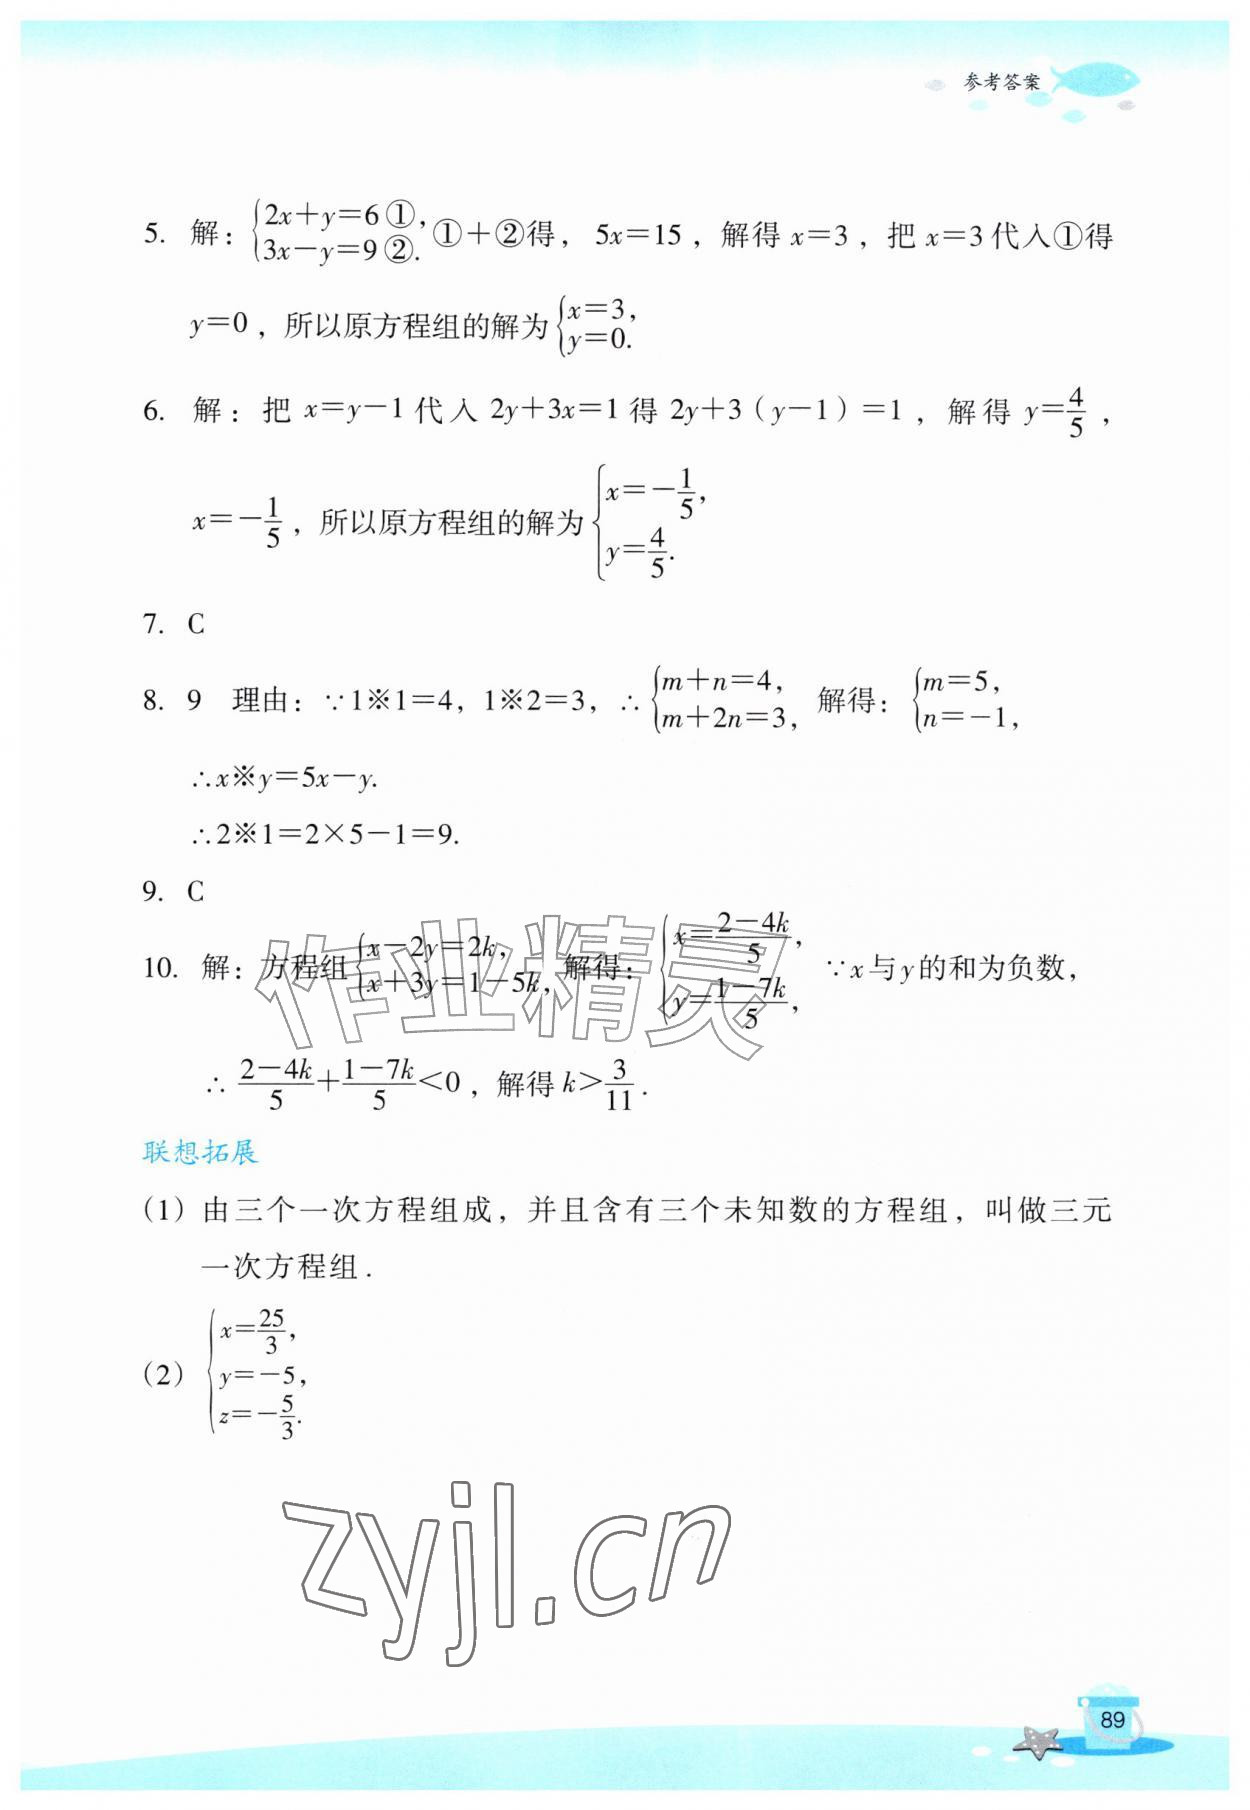 参考答案
5. 解：{2x+y=6①, 3x-y=9②. ①+②得，5x=15，解得x=3，把x=3代入①得
y=0，所以原方程组的解为{x=3, y=0.
6. 解：把x=y-1代入2y+3x=1得2y+3（y-1）=1，解得y=4/5，
x=-1/5，所以原方程组的解为{x=-1/5, y=4/5.
7. C
8. 9 理由：∵1※1=4，1※2=3，∴{m+n=4, m+2n=3, 解得：{m=5, n=-1,
∴x※y=5x-y.
∴2※1=2×5-1=9.
9. C
10. 解：方程组{x-2y=2k, x+3y=1-5k, 解得：{x=(2-4k)/5, y=(1-7k)/5, ∵x与y的和为负数，
∴(2-4k)/5+(1-7k)/5<0，解得k>3/11.
联想拓展
（1）由三个一次方程组成，并且含有三个未知数的方程组，叫做三元
一次方程组.
（2）{x=25/3, y=-5, z=-5/3.
作业精灵
zyjl.cn
89